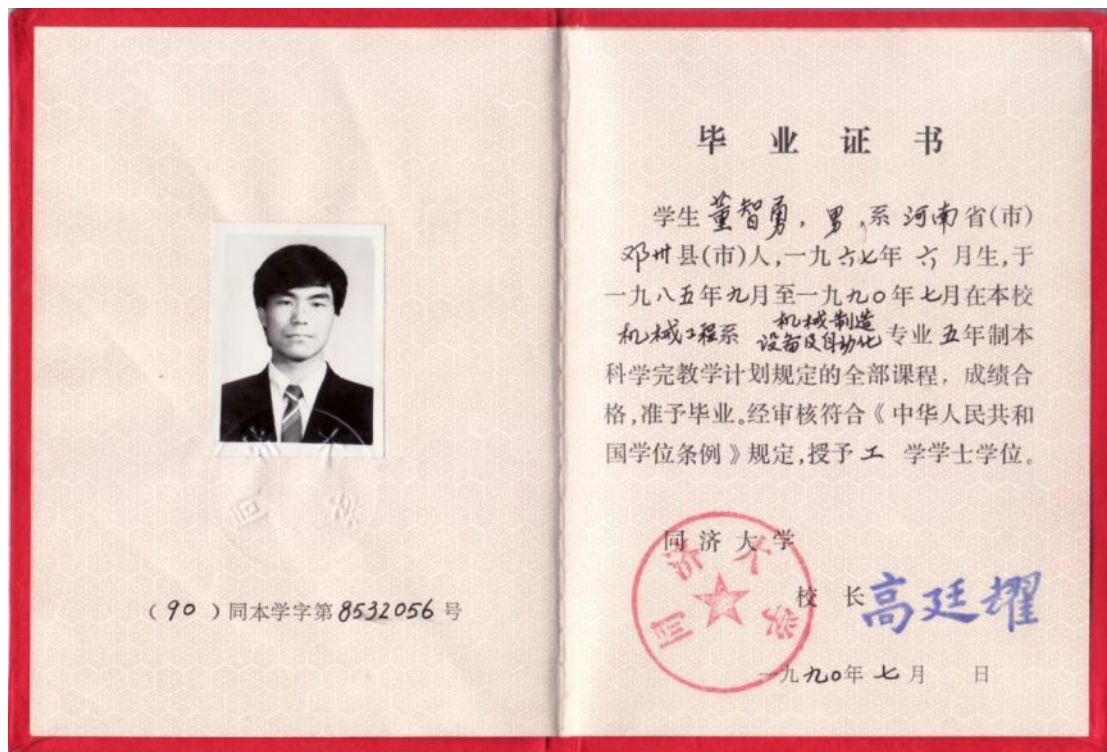 （90）同本学字第8532056号
毕业证书
学生董智勇，男，系河南省(市)
邓州县(市)人，一九六七年六月生，于
一九八五年九月至一九九〇年七月在本校
机械工程系 机械制造
设备及自动化专业五年制本
科学完教学计划规定的全部课程，成绩合
格，准予毕业。经审核符合《中华人民共和
国学位条例》规定，授予工学学士学位。
同济大学
同济大学
校长高廷耀
一九九〇年七月 日